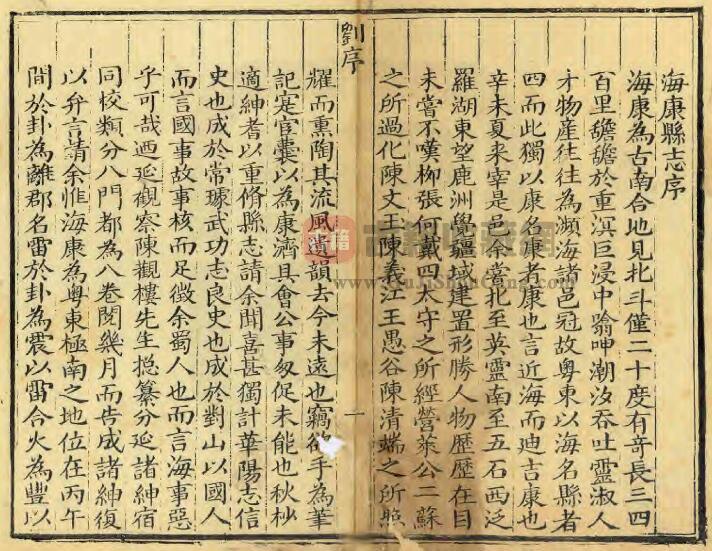 海康縣志序
海康為古南合地見北斗僅二十度有奇長三四
百里䨓䨓於重溟巨浸中翕呷潮汐吞吐靈淑人
才物產往往為瀕海諸邑冠故粵東以海名縣者
四而此獨以康名康者康也言近海而廸吉康也
辛未夏來宰是邑余嘗北至英靈南至五石西泛
羅湖東望鹿洲覺疆域建置形勝人物歷歷在目
未嘗不嘆柳張何戴四太守之所經營萊公二蘇
之所過化陳文王陳義江王愚谷陳清端之所照
劉序
一
耀而熏陶其流風遺韻去今未遠也竊欲手為筆
記寔官囊以為康濟具會公事匆促未能也秋杪
適紳耆以重脩縣志請余聞喜甚獨計華陽志信
史也成於常璩武功志良史也成於對山以國人
而言國事故事核而足徵余蜀人也而言海事惡
乎可哉廼延觀察陳觀樓先生捴纂分延諸紳宿
同校類分八門都為八卷閱幾月而告成諸紳復
以弁言請余惟海康為粵東極南之地位在丙午
間於卦為離郡名雷於卦為震以雷合火為豐以